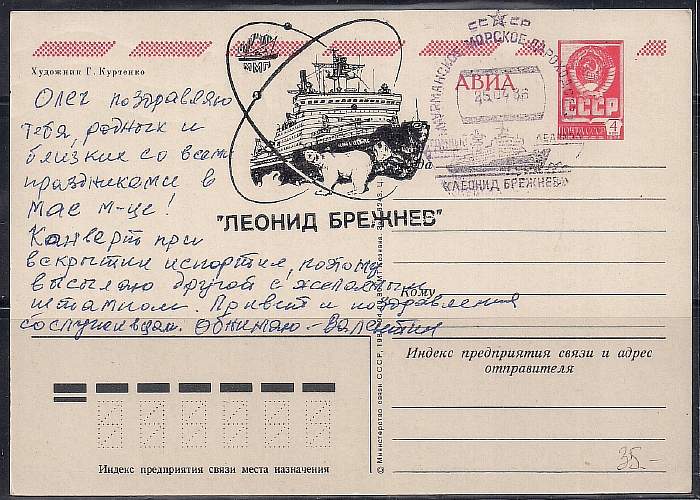 ММП
СССР
МУРМАНСКОЕ МОРСКОЕ ПАРОХОДСТВО
Художник Г. Куртенко
АВИА
25 04 86
СССР
ПОЧТА СССР 4
Олег поздравляю
тебя, родных и
близких со всеми
праздниками в
мае м-це!
"ЛЕОНИД БРЕЖНЕВ"
"ЛЕОНИД БРЕЖНЕВ"
Куда
Конверт при
вскрытии испортил, поэтому
высылаю другой с желаемым
Кому
штампом. Привет и поздравления
сослуживцам. Обнимаю - Валентин
Индекс предприятия связи и адрес
отправителя
Индекс предприятия связи места назначения
© Министерство связи СССР, 198
35-